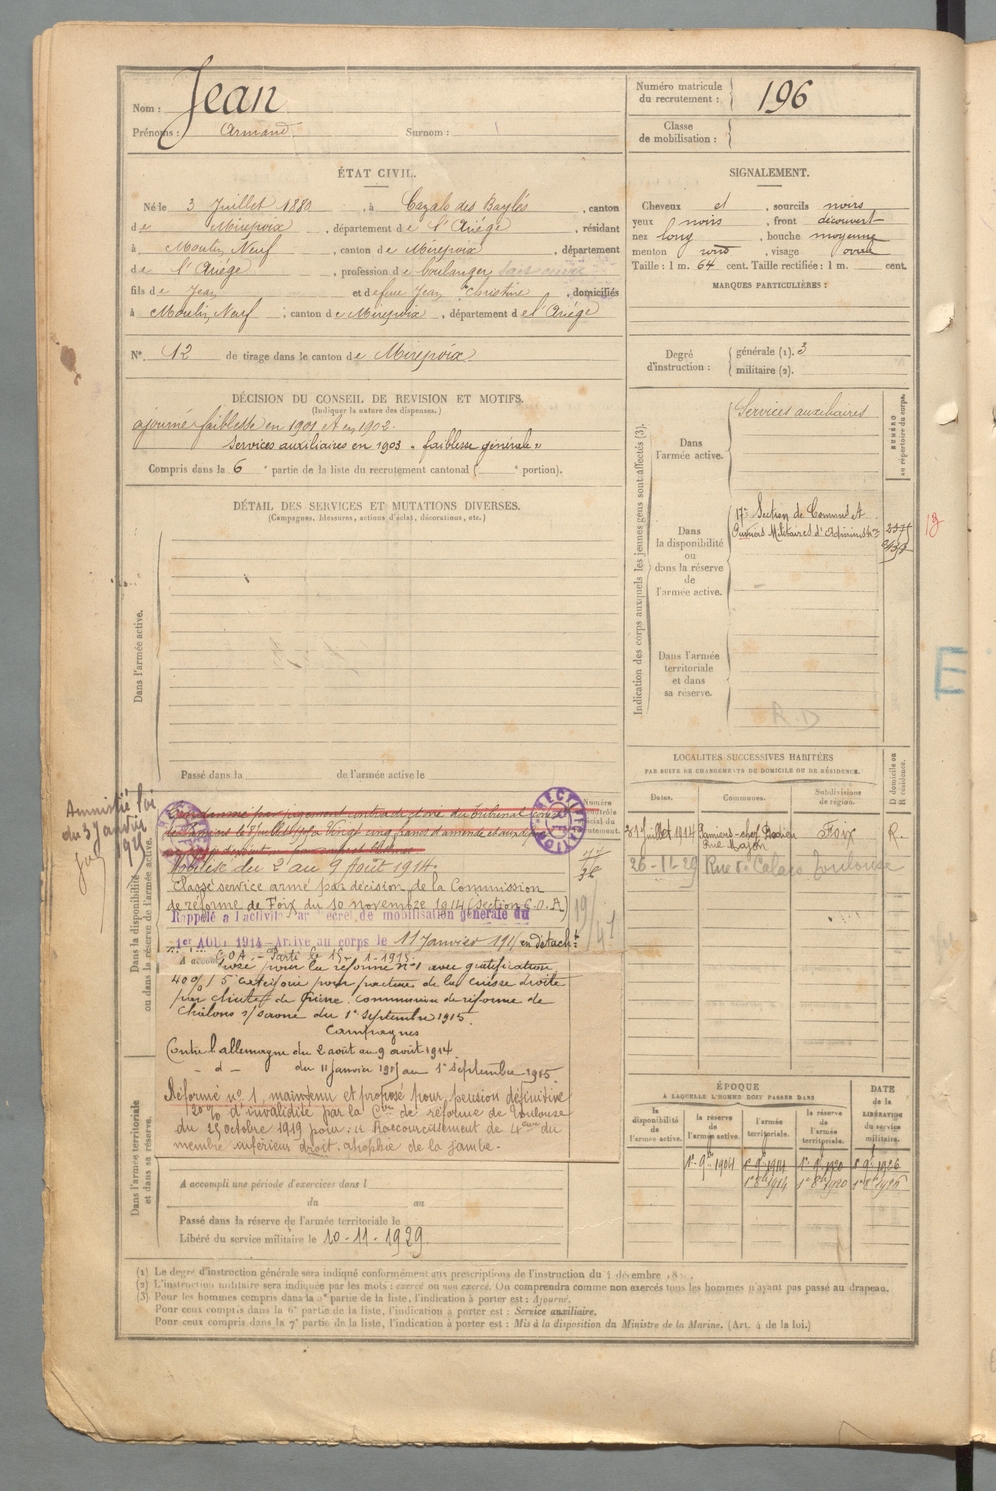 Nom : Jean
Prénoms : Armand Surnom :
Numéro matricule du recrutement : 196
Classe de mobilisation :
ÉTAT CIVIL.
Né le 3 Juillet 1880, à Cazals des Baylès, canton
de Mirepoix, département de l'Ariège, résidant
à Moulin Neuf, canton de Mirepoix, département
de l'Ariège, profession de boulanger
fils de Jean et de feue Jean Christine, domiciliés
à Moulin Neuf, canton de Mirepoix, département de l'Ariège
N° 12 de tirage dans le canton de Mirepoix
SIGNALEMENT.
Cheveux et, sourcils noirs
yeux noirs, front découvert
nez long, bouche moyenne
menton rond, visage ovale
Taille : 1 m. 64 cent. Taille rectifiée : 1 m. cent.
MARQUES PARTICULIÈRES :
Degré d'instruction : générale (1). 3
militaire (2).
DÉCISION DU CONSEIL DE REVISION ET MOTIFS.
(Indiquer la nature des dispenses.)
ajourné faiblesse en 1901 et en 1902.
Services auxiliaires en 1903 « faiblesse générale »
Compris dans la 6e partie de la liste du recrutement cantonal ( e portion).
DÉTAIL DES SERVICES ET MUTATIONS DIVERSES.
(Campagnes, blessures, actions d'éclat, décorations, etc.)
Dans l'armée active.
Passé dans la de l'armée active le
Indication des corps auxquels les jeunes gens sont affectés (3).
Dans l'armée active.
Services auxiliaires
NUMÉRO au répertoire du corps.
Dans la disponibilité ou dans la réserve de l'armée active.
17e Section de Commis et
Ouvriers Militaires d'Administon
13
Dans l'armée territoriale et dans sa réserve.
R.D
E
LOCALITÉS SUCCESSIVES HABITÉES
PAR SUITE DE CHANGEMENTS DE DOMICILE OU DE RÉSIDENCE.
Dates. Communes. Subdivisions de région. D domicile ou R résidence.
21 Juillet 1914 Pamiers Rue Major Foix R.
26-11-29 Rue de Calais Toulouse
Amnistié loi
du 3 Janvier
Dans la disponibilité ou dans la réserve de l'armée active.
RECTIFICATION
Condamné par jugement contradictoire du tribunal
de Pamiers le vingt cinq francs d'amende
Mobilisé du 2 au 9 Août 1914.
Classé service armé par décision de la Commission
de réforme de Foix du 10 novembre 1914 (Section C.O.A)
Rappelé à l'activité par décret de mobilisation générale du
1er AOUT 1914 - Arrivé au corps le 11 Janvier 1915 en détacht
C.O.A. - Parti le 15-1-1915.
pour la réforme n°1 avec gratification
40% 5e catégorie pour fracture de la cuisse droite
par chute commission de réforme de
Châlons s/ Saône du 1er septembre 1915.
Campagnes
Contre l'allemagne du 2 août au 9 août 1914.
- d - du 11 janvier 1915 au 1er septembre 1915.
Réformé n° 1, maintenu et proposé pour pension définitive
20% d'invalidité par la Con de réforme de Toulouse
du 25 octobre 1919 pour : « Raccourcissement de 4 cm du
membre inférieur droit, atrophie de la jambe. -
Dans l'armée territoriale et dans sa réserve.
A accompli une période d'exercices dans l
du au
Passé dans la réserve de l'armée territoriale le
Libéré du service militaire le 10-11-1929
ÉPOQUE
À LAQUELLE L'HOMME DOIT PASSER DANS
la disponibilité de l'armée active. la réserve de l'armée active. l'armée territoriale. la réserve de l'armée territoriale. DATE de la LIBÉRATION du service militaire.
1er 9bre 1904 1er 9bre 1914 1er 9bre 1920 1er 9bre 1926
1er 8bre 1914 1er 8bre 1920 1er 8bre 1926
(1) Le degré d'instruction générale sera indiqué conformément aux prescriptions de l'instruction du 4 décembre
(2) L'instruction militaire sera indiquée par les mots : exercé ou non exercé. On comprendra comme non exercés tous les hommes n'ayant pas passé au drapeau.
(3) Pour les hommes compris dans la 5e partie de la liste, l'indication à porter est : Ajourné.
Pour ceux compris dans la 6e partie de la liste, l'indication à porter est : Service auxiliaire.
Pour ceux compris dans la 7e partie de la liste, l'indication à porter est : Mis à la disposition du Ministre de la Marine. (Art. 4 de la loi.)